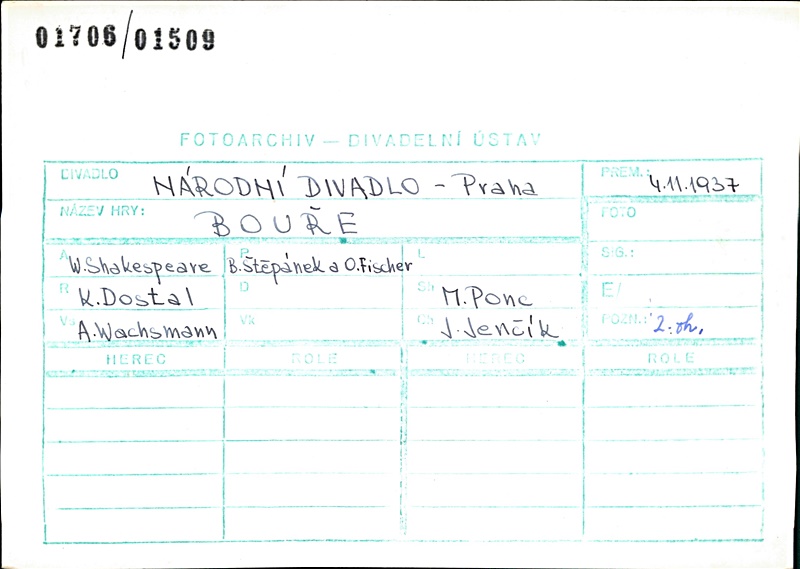 01706/01509
FOTOARCHIV — DIVADELNÍ ÚSTAV
DIVADLO NÁRODNÍ DIVADLO - Praha PREM.: 4.11.1937
NÁZEV HRY: BOUŘE FOTO
A W.Shakespeare P B.Štěpánek a O.Fischer L SIG.:
R K.Dostal D Sh M.Ponc E/
Vs A.Wachsmann Vk Ch J.Jenčík POZN.: 2.oh.
HEREC ROLE HEREC ROLE